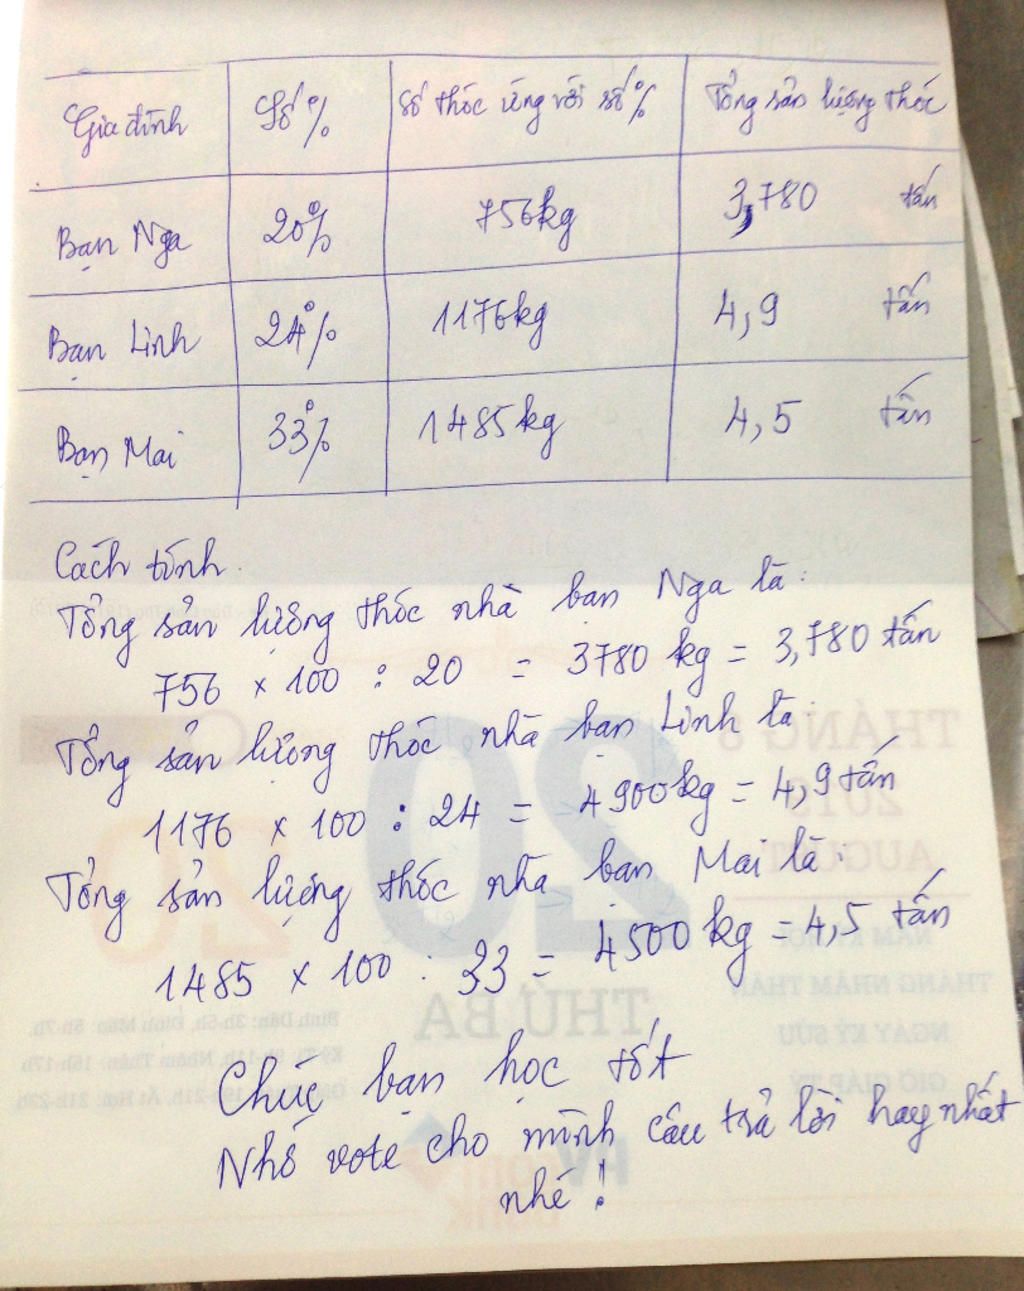 Gia đình Số % Số thóc ứng với số % Tổng sản lượng thóc
Bạn Nga 20% 756kg 3,780 tấn
Bạn Linh 24% 1176kg 4,9 tấn
Bạn Mai 33% 1485kg 4,5 tấn
Cách tính.
Tổng sản lượng thóc nhà bạn Nga là:
756 x 100 : 20 = 3780 kg = 3,780 tấn
Tổng sản lượng thóc nhà bạn Linh là:
1176 x 100 : 24 = 4900kg = 4,9 tấn
Tổng sản lượng thóc nhà bạn Mai là:
1485 x 100 : 33 = 4500 kg = 4,5 tấn
Chúc bạn học tốt
Nhớ vote cho mình câu trả lời hay nhất
nhé !
THÁNG 8
2013
AUGUST
20
20
THỨ BA
NĂM KỶ HỢI
THÁNG NHÂM THÂN
NGÀY KỶ SỬU
GIỜ GIÁP TÝ